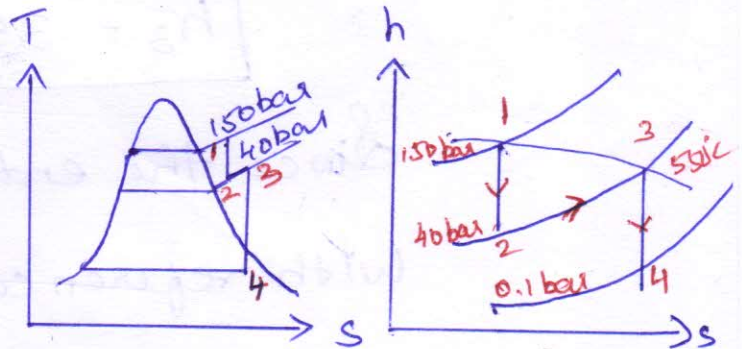 T
150bar
40bar
1
2
3
4
S
h
150bar
1
3
550°c
40bar
2
0.1bar
4
S